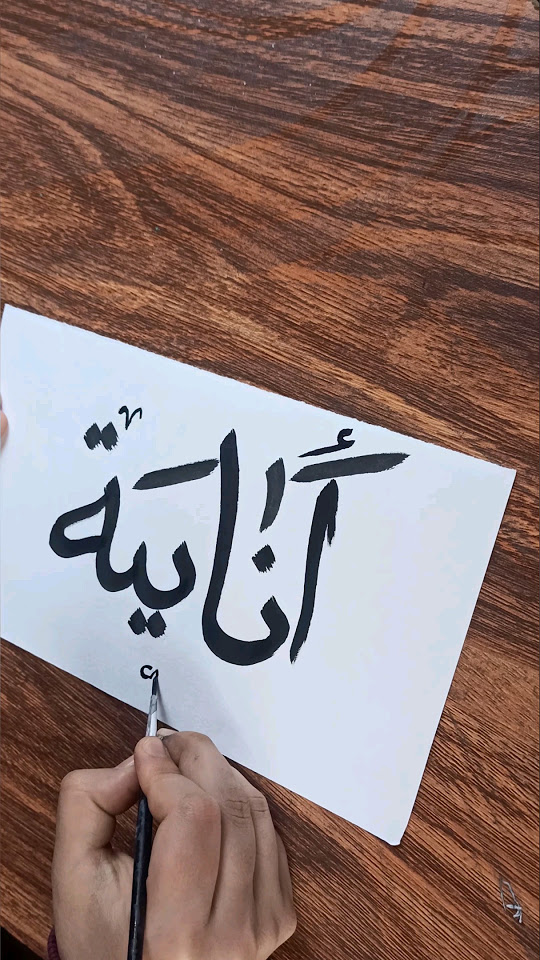 أَنَابيَة